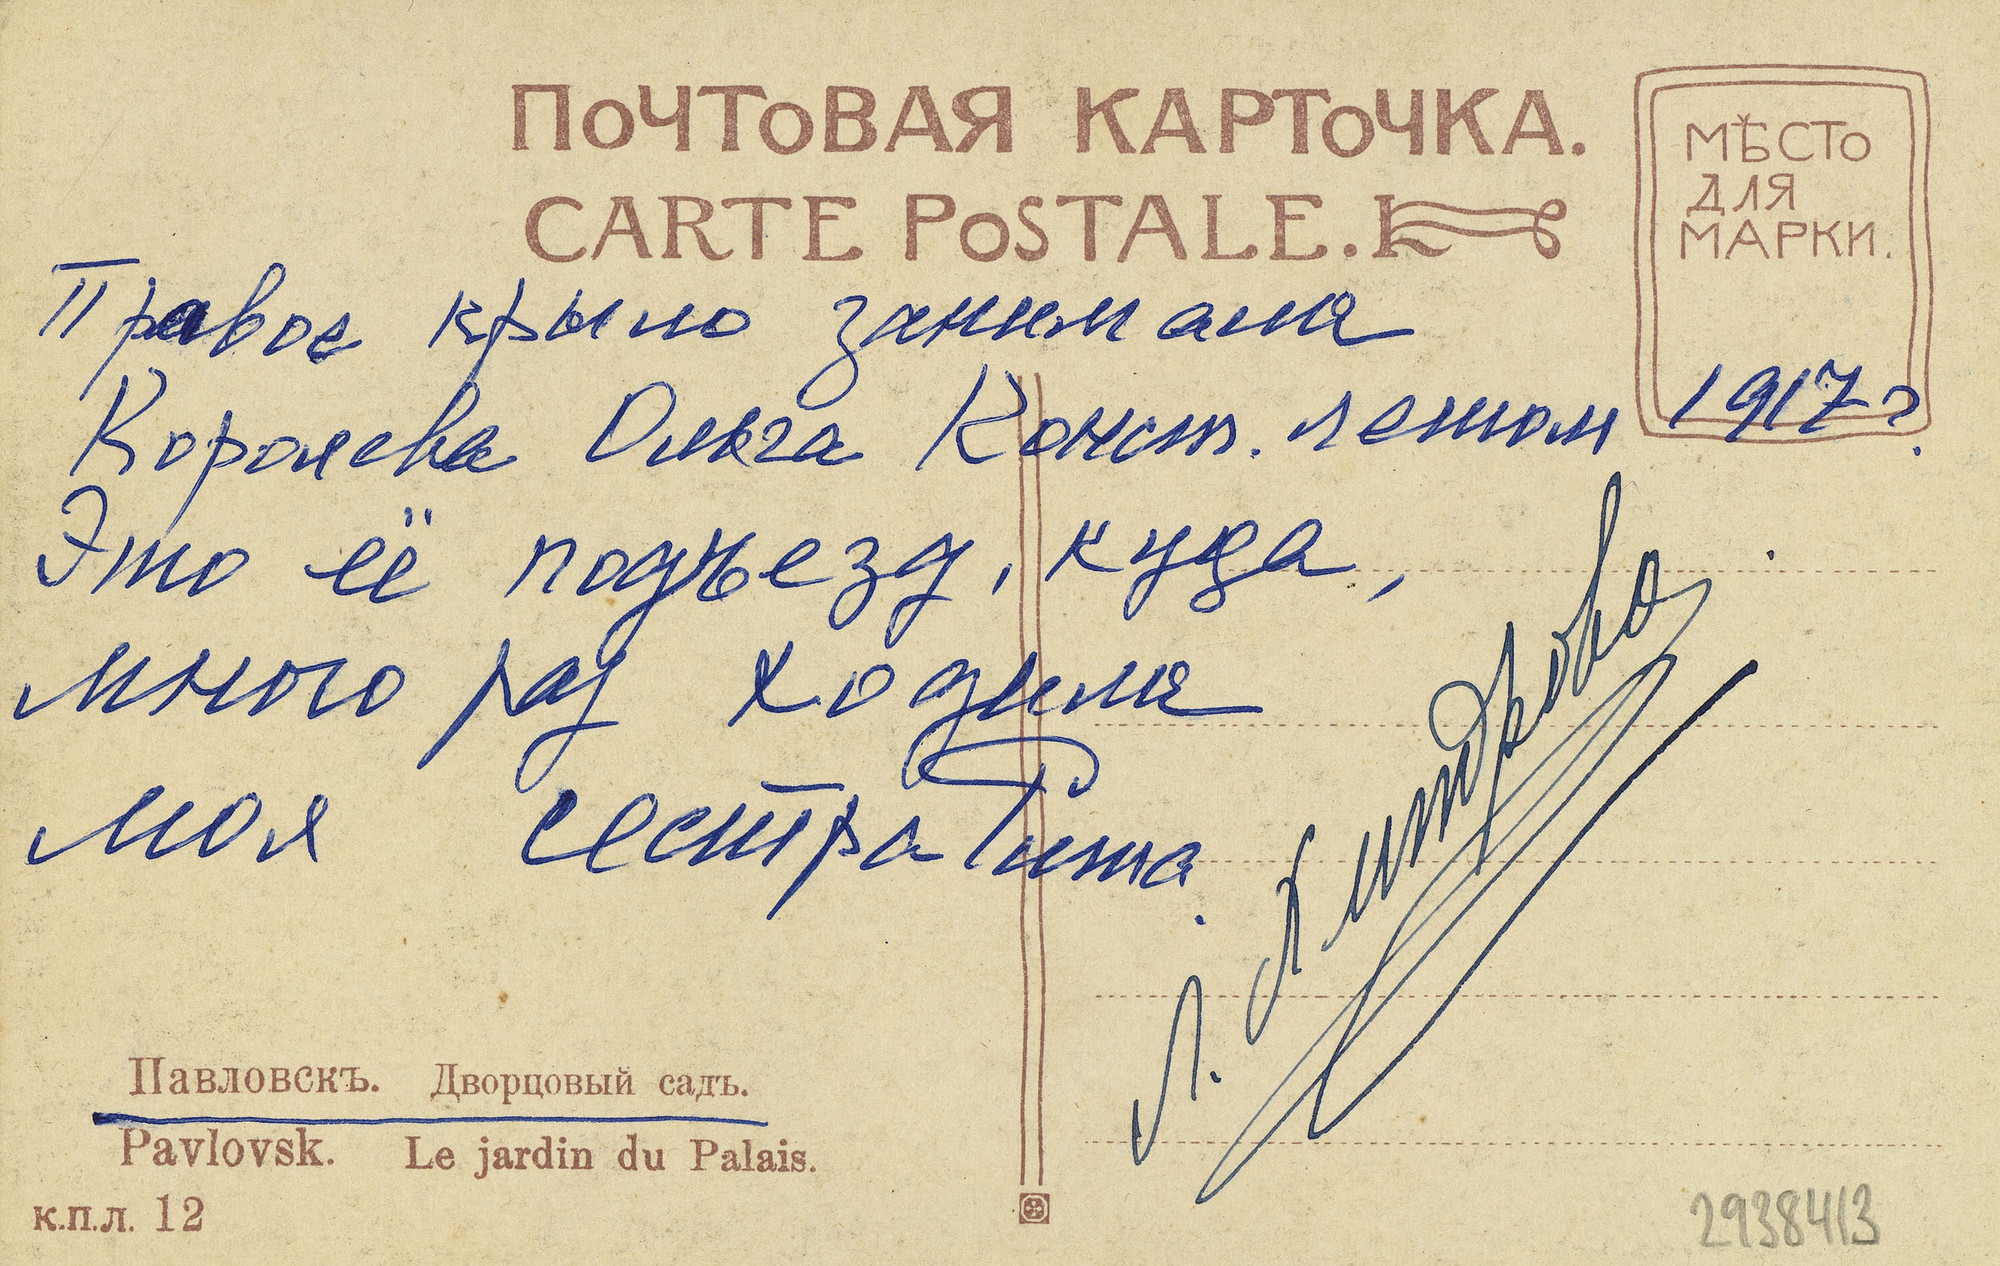 ПОЧТОВАЯ КАРТОЧКА.
CARTE POSTALE.
МѢСТО
ДЛЯ
МАРКИ.
Правое крыло занимала
Королева Ольга Конст. летом 1917 г.
Это её подъезд, куда,
много раз ходила
моя сестра Тита.
Л.
Павловскъ. Дворцовый садъ.
Pavlovsk. Le jardin du Palais.
к.п.л. 12
2938413